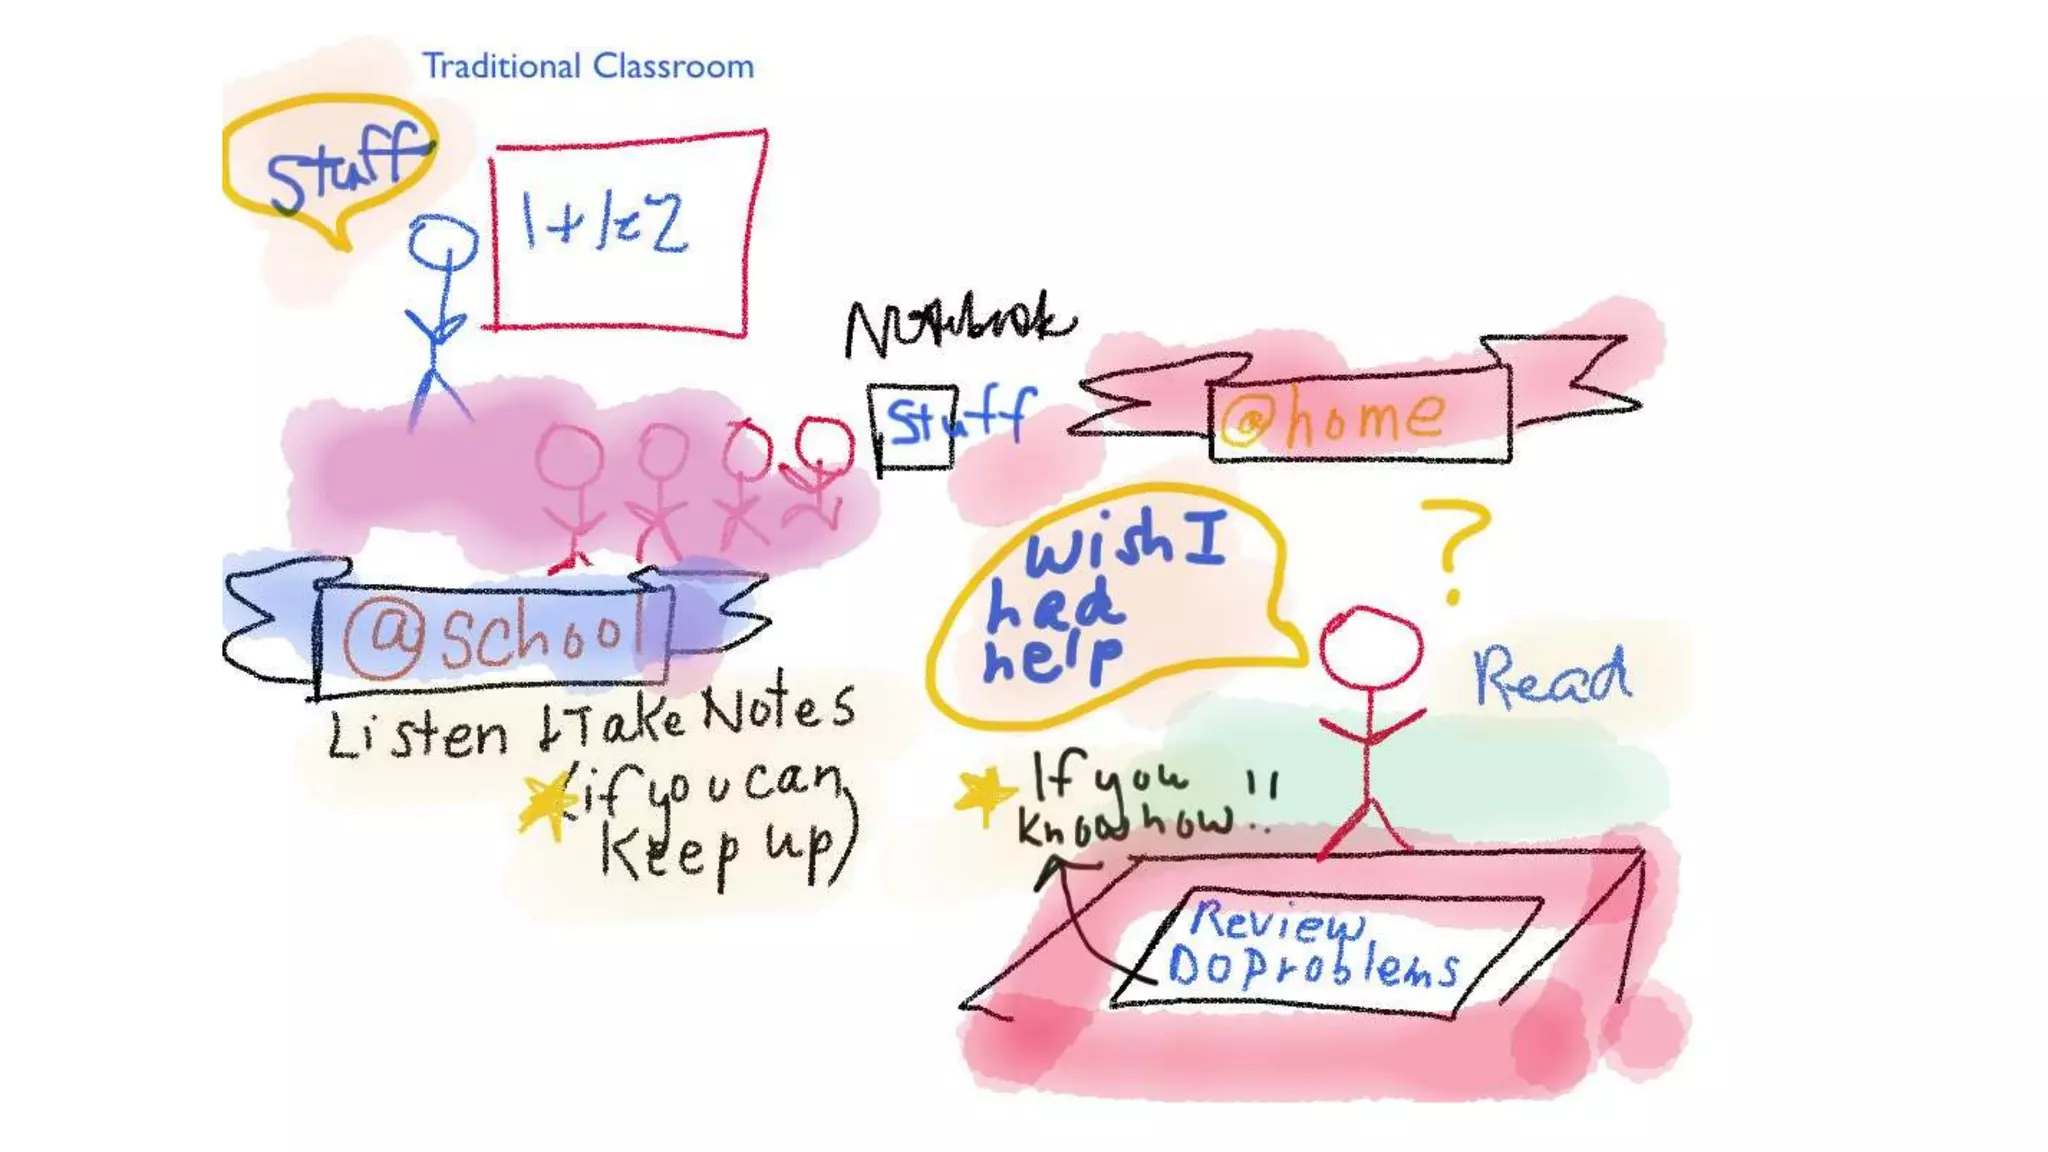 Traditional Classroom
Stuff
1+1=2
Notebook
Stuff
@school
Listen & Take Notes
(if you can
keep up)
@home
?
Wish I
had
help
Read
If you
know how!!
Review
Do Problems